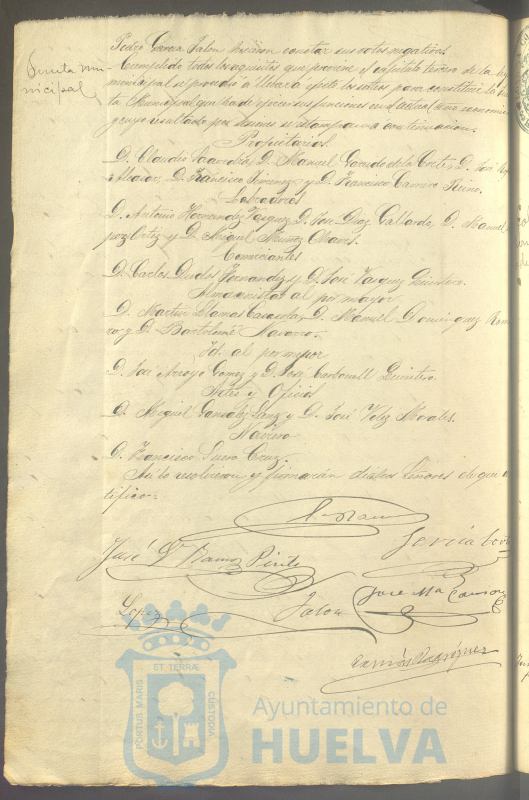 Pedro García Jalon hicieron constar sus votos negativos.
Junta mu-
nicipal
Cumpliendo todos los requisitos que previene el capítulo tercero de la ley
municipal se procedió a llevar á efecto los sorteos para constituir la
Junta Municipal que ha de ejercer sus funciones en el actual año economico
y cuyo resultado por secciones se estampa a continuacion.
Propietarios.
D. Claudio Saavedra, D. Manuel de la Corte, D. José
D. Francisco Jimenez y D. Francisco Carrero
Labradores
D. Antonio Hernandez Vazquez, D. Jose Diaz Gallardo, D. Manuel
Ortiz y D. Miguel Muñoz
Comerciantes
D. Carlos Hernandez y D. José Vazquez
Almacenistas al por mayor
D. Martin Llamas D. Manuel Dominguez Rome
ro y D. Bartolomé Navarro.
Id. al por menor
D. José Arroyo Gomez y D. José Carbonell Quintero.
Artes y Oficios
D. Miguel Gonzalez Sanz y D. José Velez Morales.
Marina
D. Francisco Suero Cruz.
Asi lo resolvieron y firmarán dichos Señores de que
tifico=
García
José Ramos Pinto
Lopez
Jalon
Jose Ma
Ramón Rodríguez
PORTUS MARIS ET TERRÆ CUSTODIA
Ayuntamiento de
HUELVA